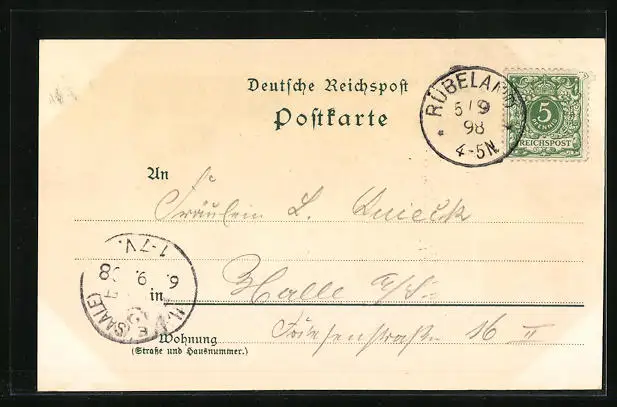 Deutsche Reichspost
Postkarte
RÜBELAND
5/9
98
4-5N
*
*
5
PFENNIG
REICHSPOST
An
Fräulein L. Knieck
in Halle a/S.
Wohnung
(Straße und Hausnummer.)
16 II
1-7V.
6. 9. 98
(SAALE)